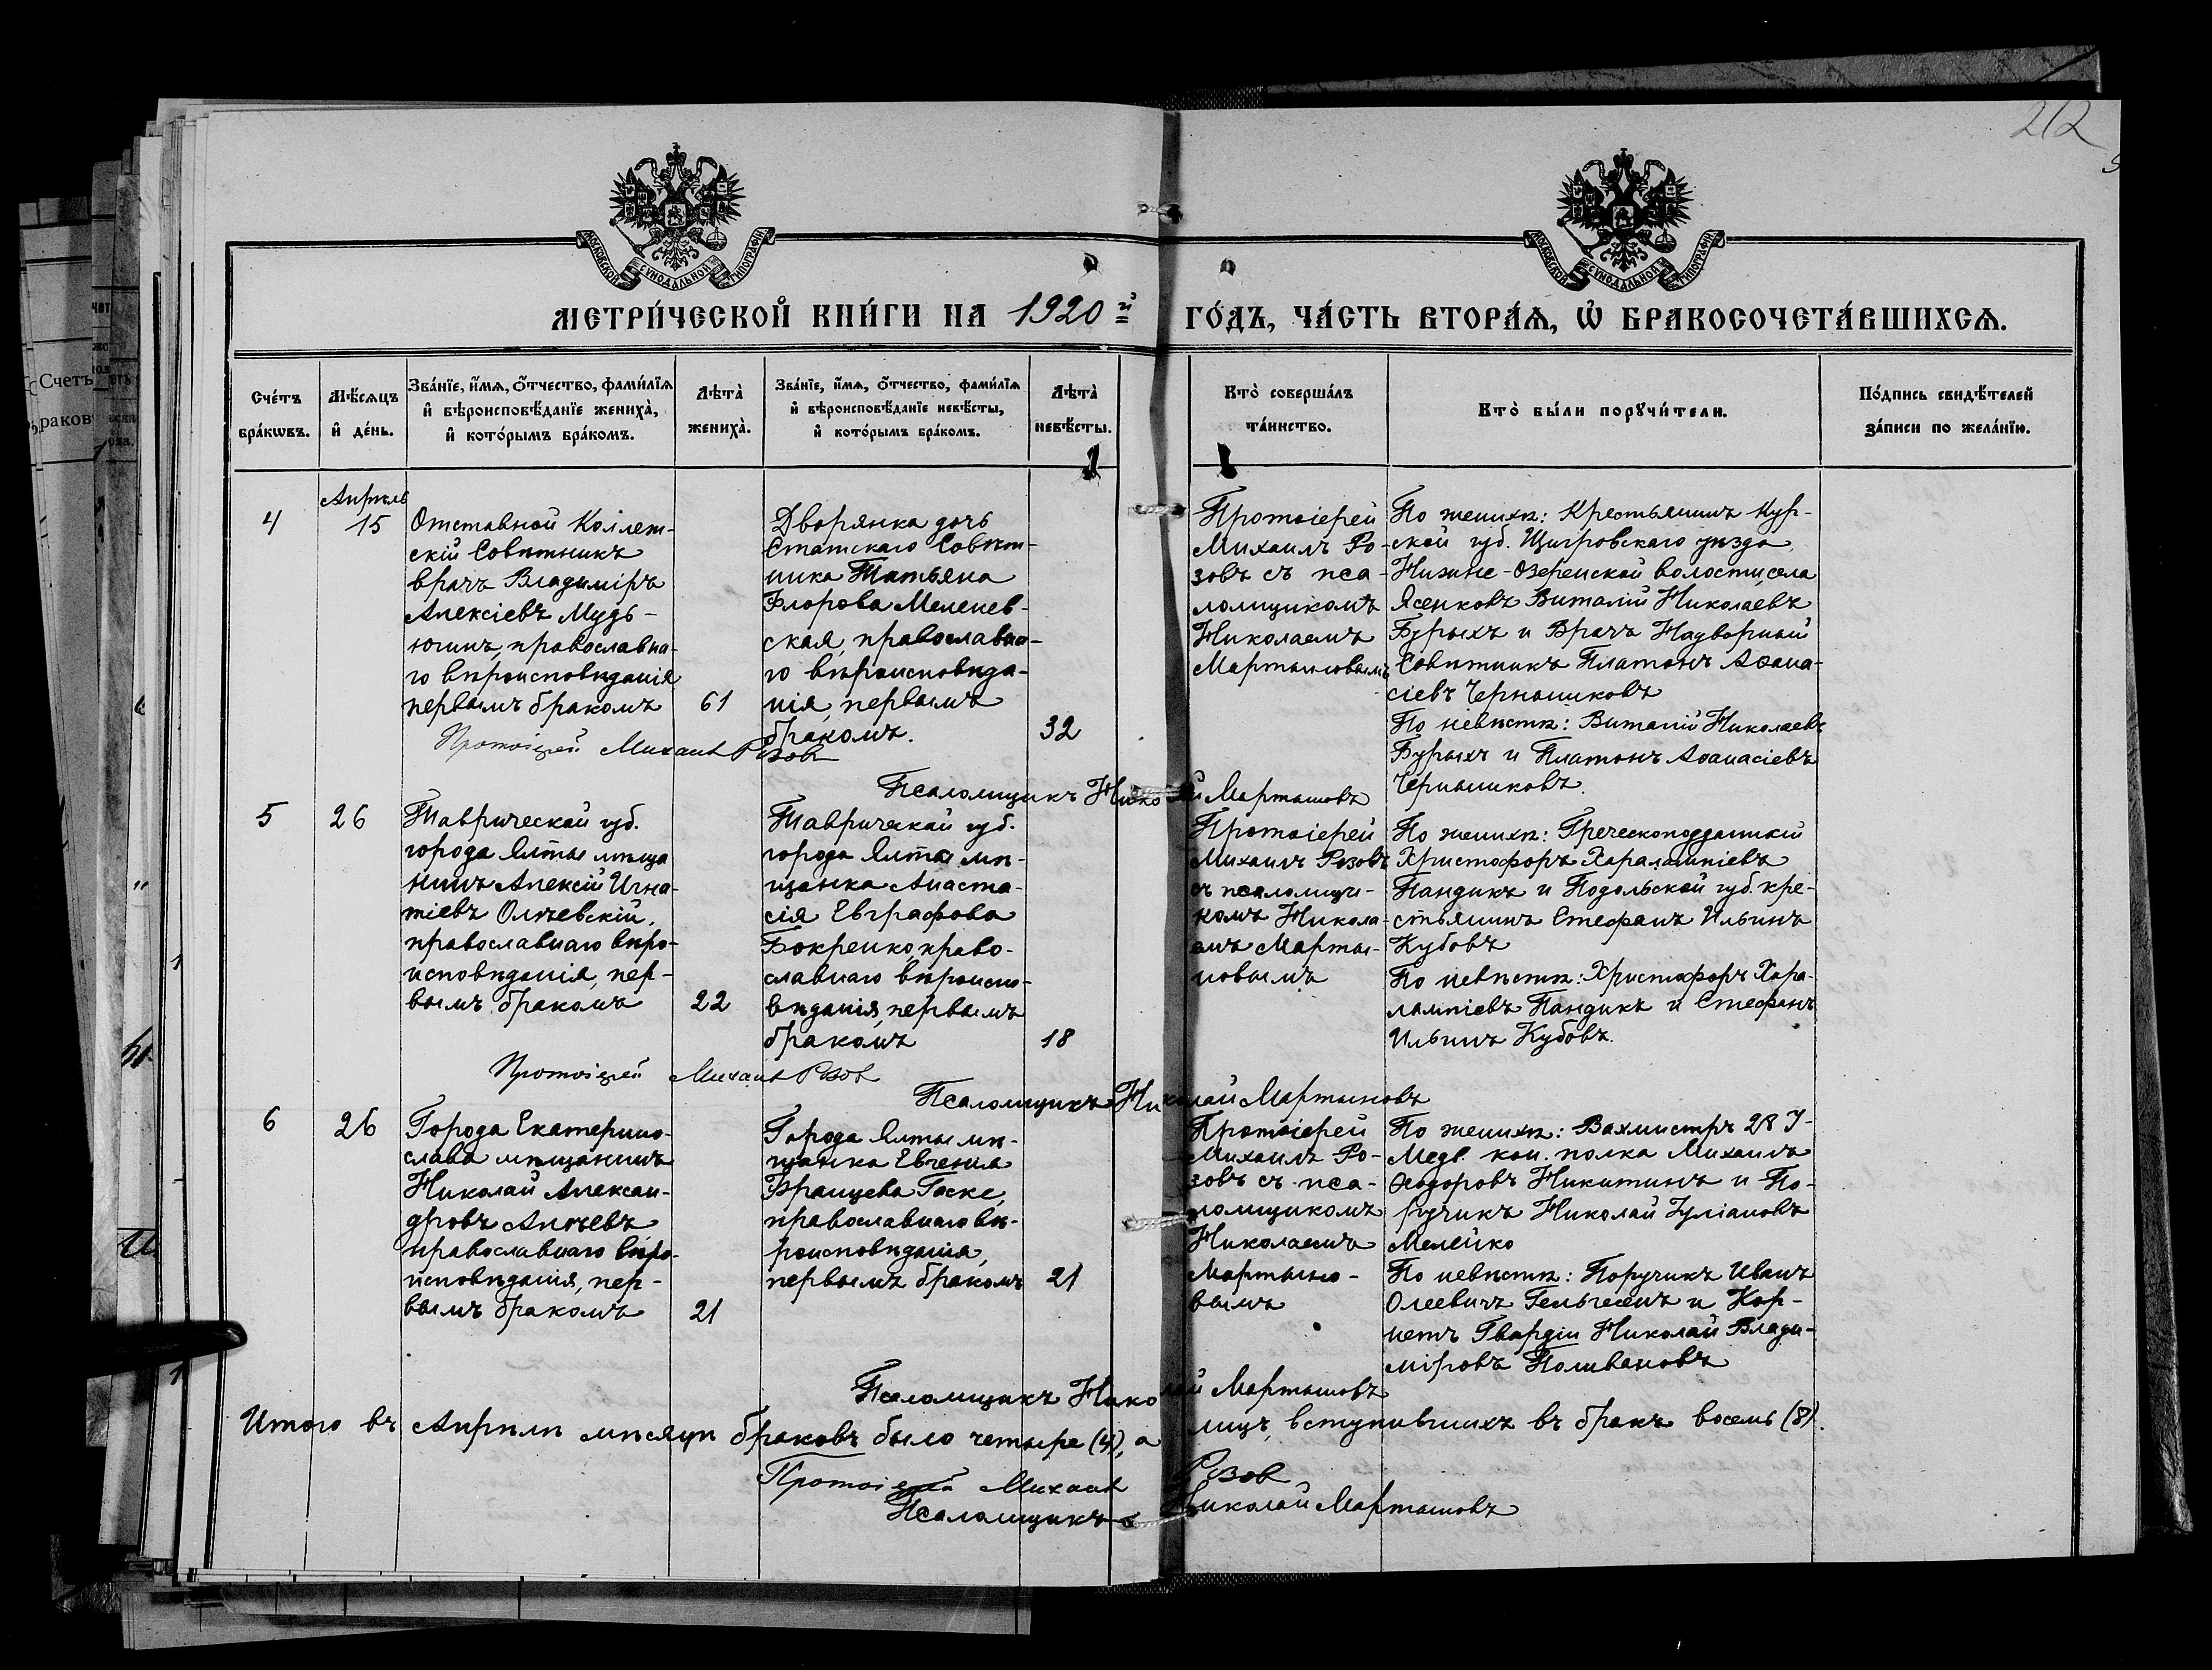 212
МОСКОВСКОЙ СѴНОДАЛЬНОЙ ТИПОГРАФІИ
МОСКОВСКОЙ СѴНОДАЛЬНОЙ ТИПОГРАФІИ
МЕТРИ́ЧЕСКОЙ КНИ́ГИ НА 1920й ГО́ДЪ, ЧА́СТЬ ВТОРА́Ѧ, Ѡ҆ БРАКОСОЧЕТА́ВШИХСѦ.
Сче́тъ
бра́кѡвъ.
Мѣ́сѧцъ
и҆ де́нь.
Зва́нїе, и҆́мѧ, ѻ҆́тчество, фами́лїѧ
и҆ вѣроисповѣ́данїе жениха̀,
и҆ кото́рымъ бра́комъ.
Лѣта̀
жениха̀.
Зва́нїе, и҆́мѧ, ѻ҆́тчество, фами́лїѧ
и҆ вѣроисповѣ́данїе невѣ́сты,
и҆ кото́рымъ бра́комъ.
Лѣта̀
невѣ́сты.
Кто̀ соверша́лъ
та́инство.
Кто̀ бы́ли порꙋчи́тели.
По́дпись свидѣ́телей
за́писи по жела́нїю.
4
Апрѣль
15
Отставной Коллеж-
скій Совѣтникъ
врачъ Владиміръ
Алексіевъ Мудь-
югинъ, православна-
го вѣроисповѣданія
первымъ бракомъ
61
Дворянка дочь
Статскаго Совѣт-
ника Татьяна
Флорова Меленев-
ская, православна-
го вѣроисповѣда-
нія, первымъ
бракомъ.
32
Протоіерей
Михаилъ Ро-
зовъ съ пса-
ломщикомъ
Николаемъ
Мартыновымъ
По женихѣ: Крестьянинъ Кур-
ской губ. Щигровскаго уѣзда,
Нижне-Озеренской волости, села
Ясенковъ Виталій Николаевъ
Бурыхъ и Врачъ Надворный
Совѣтникъ Платонъ Аѳана-
сіевъ Чернышковъ
По невѣстѣ: Виталій Николаевъ
Бурыхъ и Платонъ Аѳанасіевъ
Чернышковъ.
Протоіерей Михаилъ Розовъ
Псаломщикъ Николай Мартыновъ
5
26
Таврической губ.
города Ялты мѣща
нинъ Алексій Игна-
тіевъ Ольчевскій,
православнаго вѣро-
исповѣданія, пер-
вымъ бракомъ
22
Таврической губ.
города Ялты мѣ-
щанка Анаста-
сія Евграфова
Бокренко, право-
славнаго вѣроиспо-
вѣданія, первымъ
бракомъ
18
Протоіерей
Михаилъ Розовъ
съ псаломщи-
комъ Никола-
емъ Марты-
новымъ
По женихѣ: Греческоподданный
Христофоръ Харалампіевъ
Пандикъ и Подольской губ. кре-
стьянинъ Стефанъ Ильинъ
Кубовъ
По невѣстѣ: Христофоръ Хара-
лампіевъ Пандикъ и Стефанъ
Ильинъ Кубовъ.
Протоіерей Михаилъ Розовъ
Псаломщикъ Николай Мартыновъ
6
26
Города Екатерино-
слава мѣщанинъ
Николай Алексан-
дровъ
православнаго вѣро-
исповѣданія, пер-
вымъ бракомъ
21
Города Ялты мѣ-
щанка Евгенія
Францева Гаске,
православнаго вѣ-
роисповѣданія,
первымъ бракомъ
21
Протоіерей
Михаилъ Ро-
зовъ съ пса-
ломщикомъ
Николаемъ
Мартыно-
вымъ
По женихѣ: Вахмистръ
кон. полка Михаилъ
Ѳеодоровъ Никитинъ и По-
ручикъ Николай Іуліановъ
Мелейко
По невѣстѣ: Поручикъ Иванъ
и Кор-
нетъ Гвардіи Николай Влади-
міровъ Поливановъ
Псаломщикъ Николай Мартыновъ
Итого въ Апрѣлѣ мѣсяцѣ браковъ было четыре (4), а лицъ, вступившихъ въ бракъ восемь (8).
Протоіерей Михаилъ Розовъ
Псаломщикъ Николай Мартыновъ